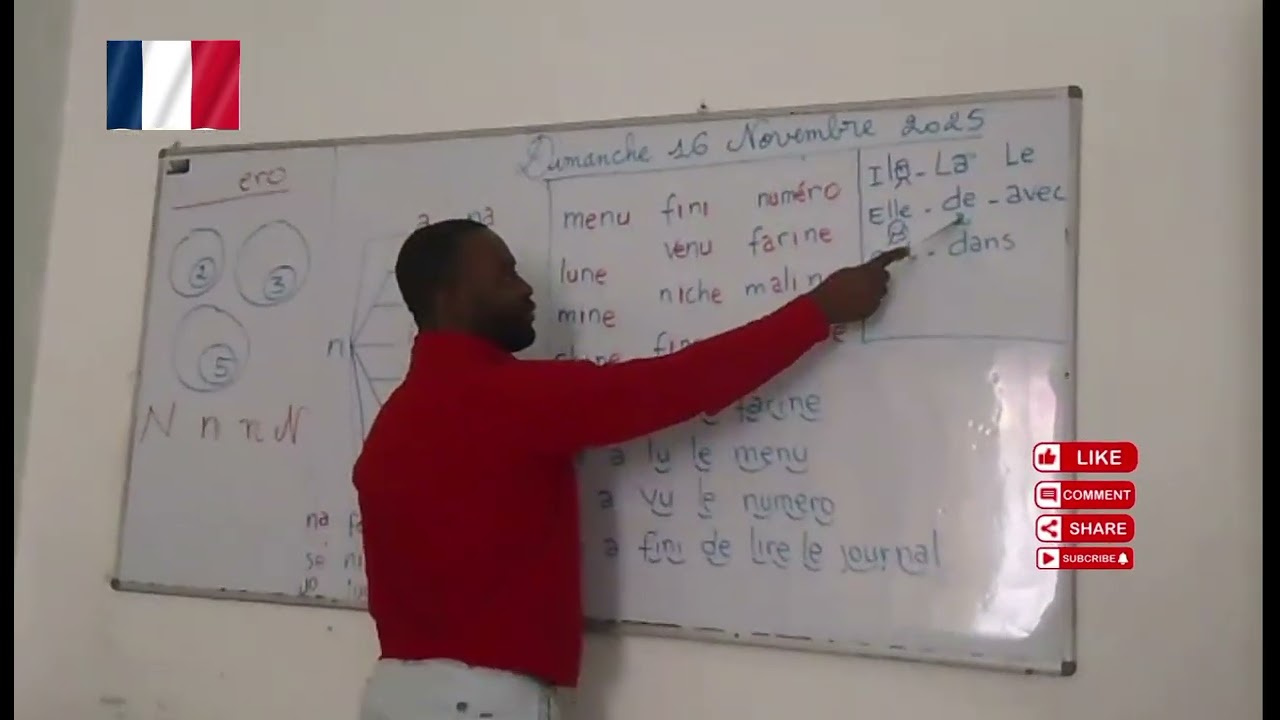 Dimanche 16 Novembre 2025
ero
2
3
5
N n n N
a na
n
na
sé
menu fini numéro
venu farine
lune
niche malin
mine
farine
a lu le menu
a vu le numero
a fini de lire le journal
Il - La Le
Elle - de - avec
- dans
LIKE
COMMENT
SHARE
SUBSCRIBE